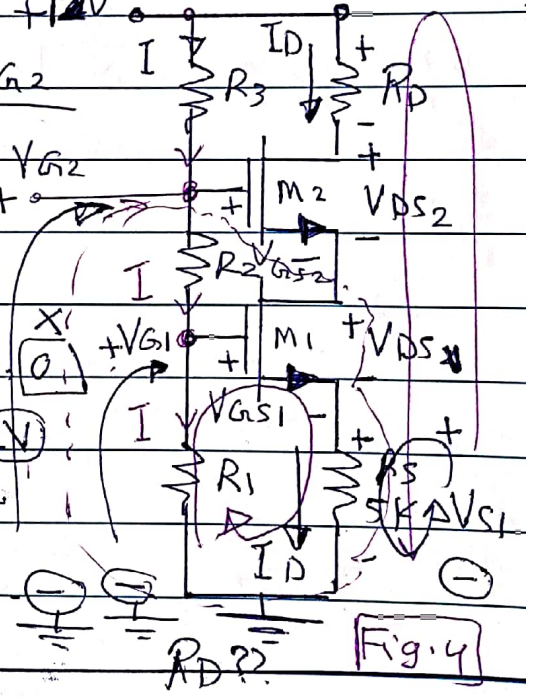 I
ID
+
R3
RD
-
G2
VG2
+
M2
+
VDS2
-
+
I
R2
VGS2
X
0
+VG1
+
M1
+
VDS1
-
V
I
VGS1
-
+
+
R1
RS
5K
VS1
ID
-
-
-
-
RD??
Fig.4